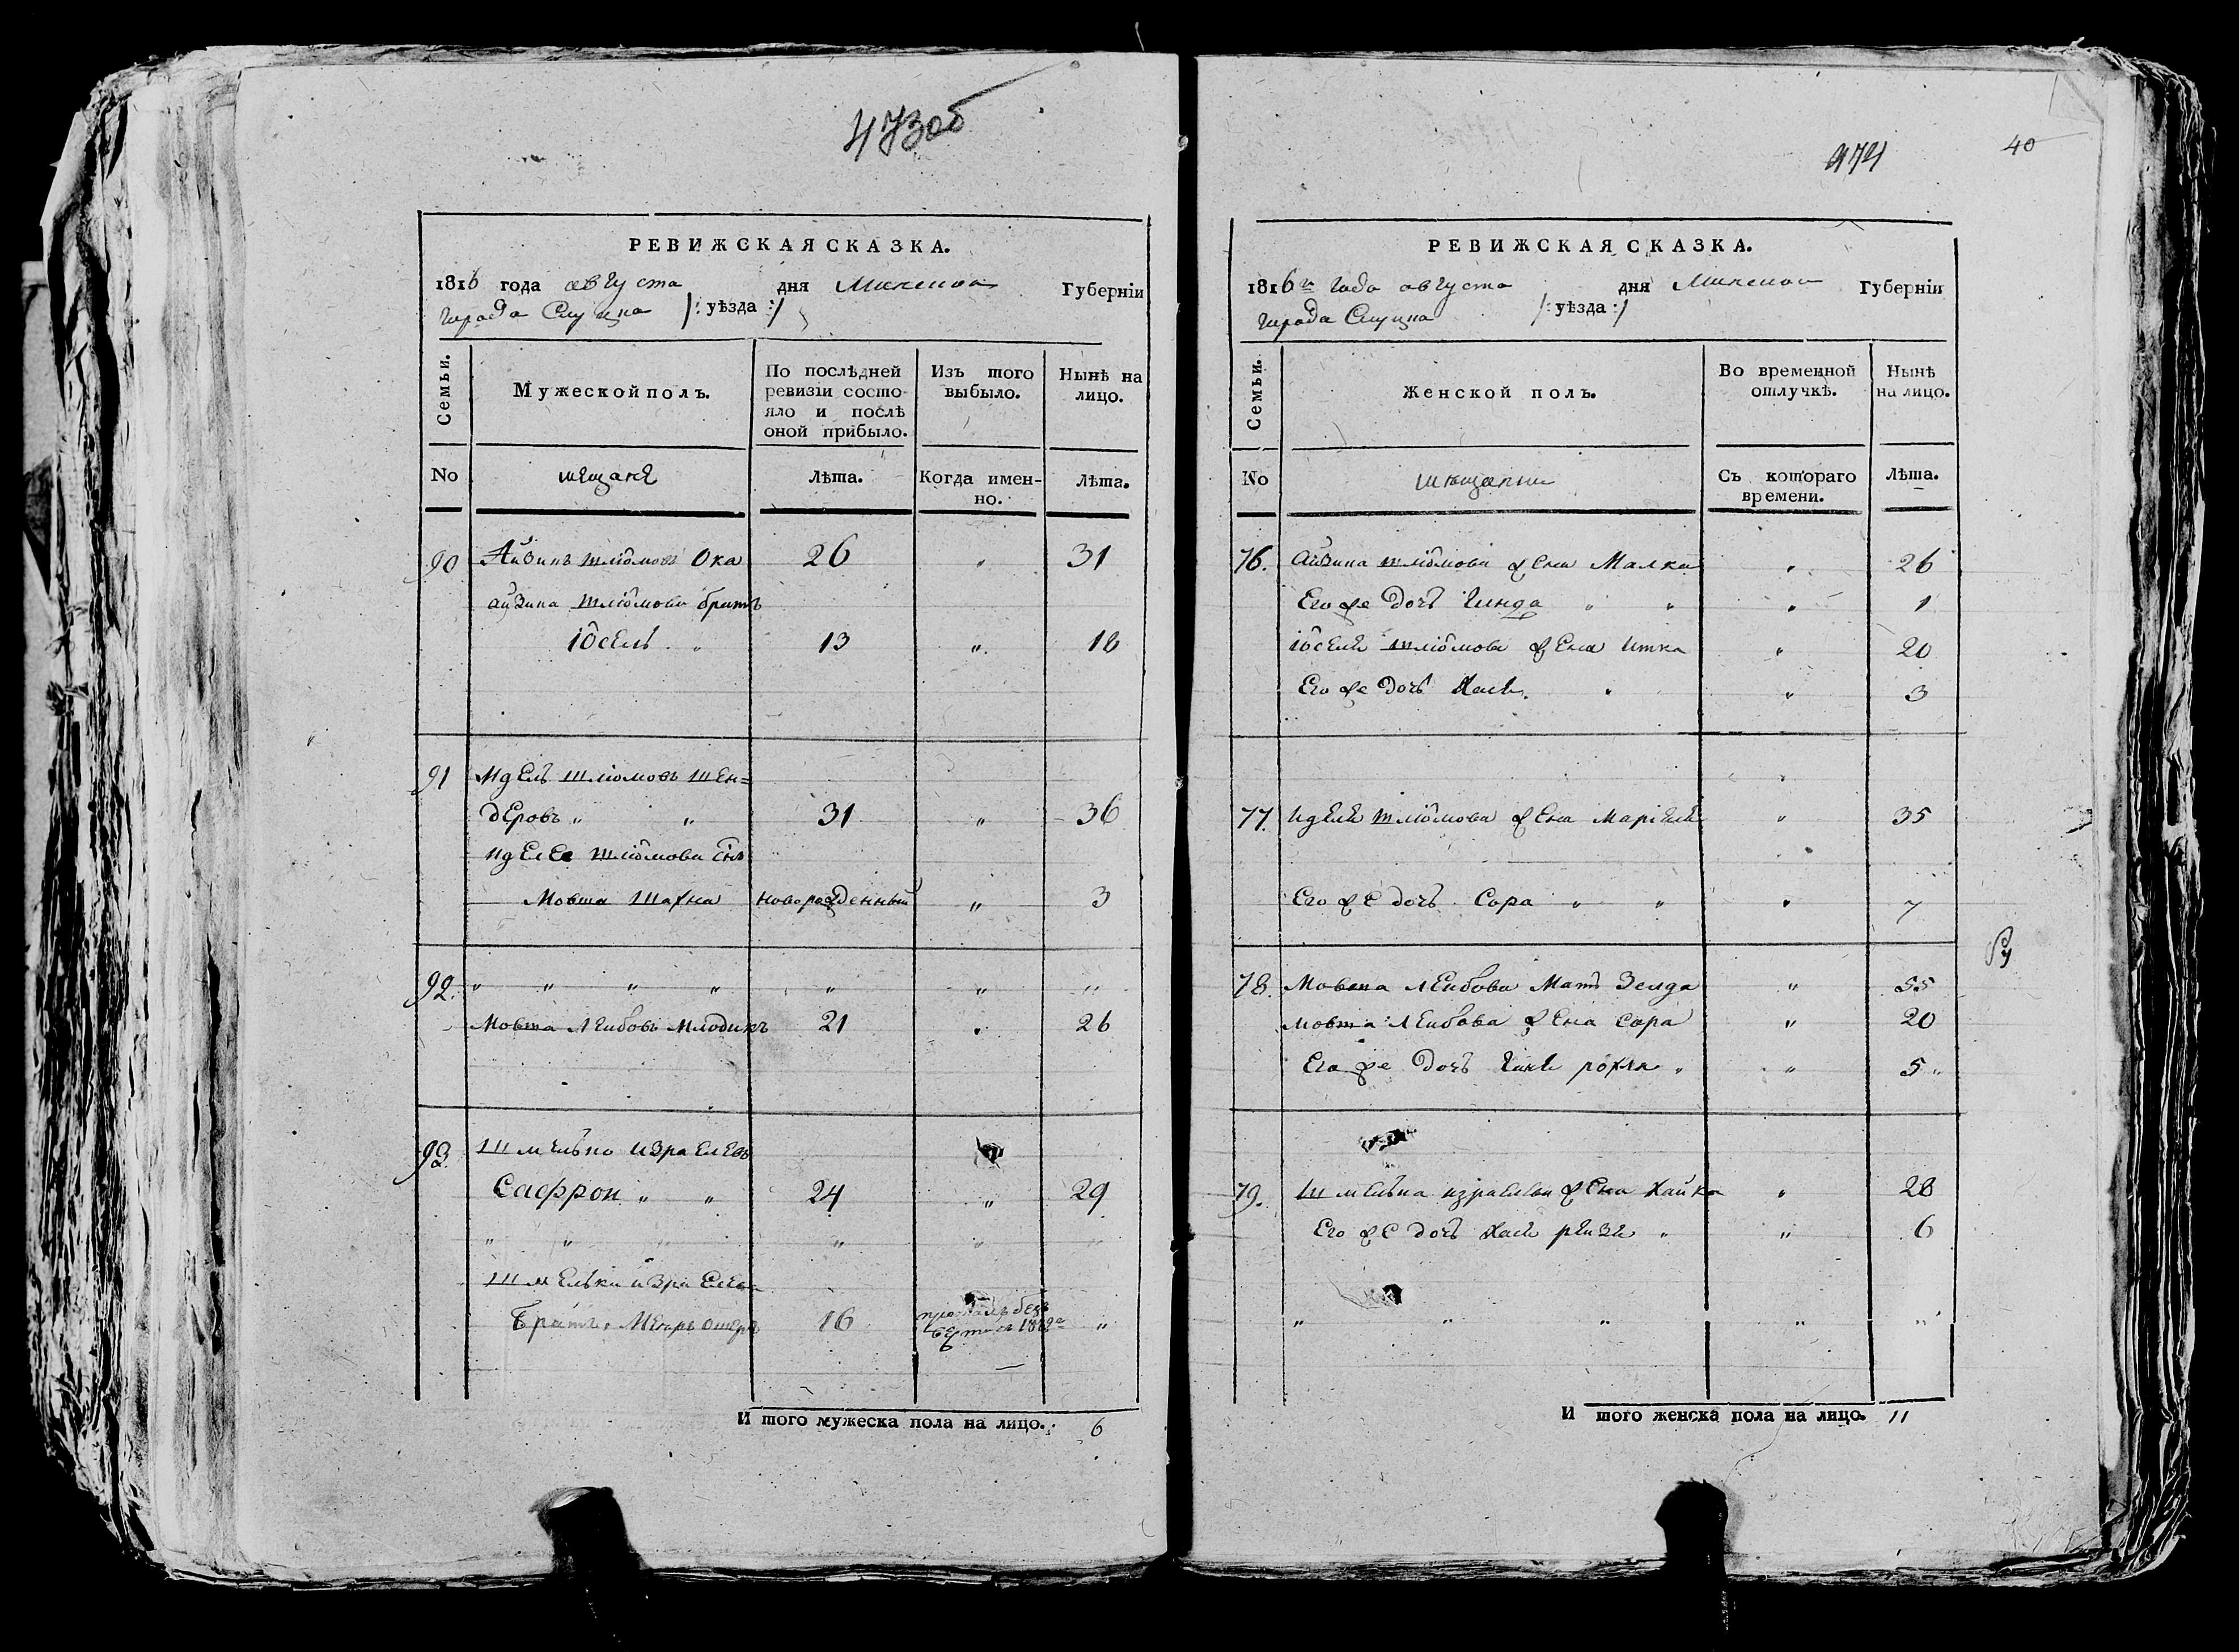 473об
РЕВИЖСКАЯ СКАЗКА.
1816 года августа дня Минской Губерніи
города Слуцка /: уѣзда :/
Семьи.
Мужеской полъ.
По послѣдней ревизіи состо-
яло и послѣ
оной прибыло.
Изъ того
выбыло.
Нынѣ на
лицо.
No
мещане
Лѣта.
Когда имен-
но.
Лѣта.
90 Айзикъ Шліомовъ Ока 26 " 31
айзика Шліомова братъ
іосель " 13 " 18
91 Идель Шліомовъ Шен=
деровъ " " 31 " 36
Иделя Шліомова снъ
Мовша Шахна новорожденный " 3
92. " " " " " " "
Мовша Леибовъ Млодикъ 21 " 26
93. Шмелько Израелевъ
Саффрон " " 24 " 29
" " " " " "
Шмелька Израелева
Братъ " 16 "
И того мужеска пола на лицо. 6
474
40
РЕВИЖСКАЯ СКАЗКА.
1816 года августа дня Минской Губерніи
города Слуцка /: уѣзда :/
Семьи.
Женской полъ.
Во временной
отлучкѣ.
Нынѣ
на лицо.
No
мещанки
Съ котораго
времени.
Лѣта.
76. Айзика Шліомова жена Малка " 26
Его же дочь Гинда " " " 1
іоселя Шліомова жена Итка " 20
Его же дочь Хася " " 3
77. Иделя Шліомова жена Маріеля " 35
Его же дочь Сора " " " 7
78. Мовша Леибова Мать Зелда " 55
Мовша Леибова жена Сора " 20
Его же дочь рохля " " 5 "
79. Шмелька израелева жена Хайка " 28
Его же дочь Хася " " 6
" " " " "
И того женска пола на лицо. 11